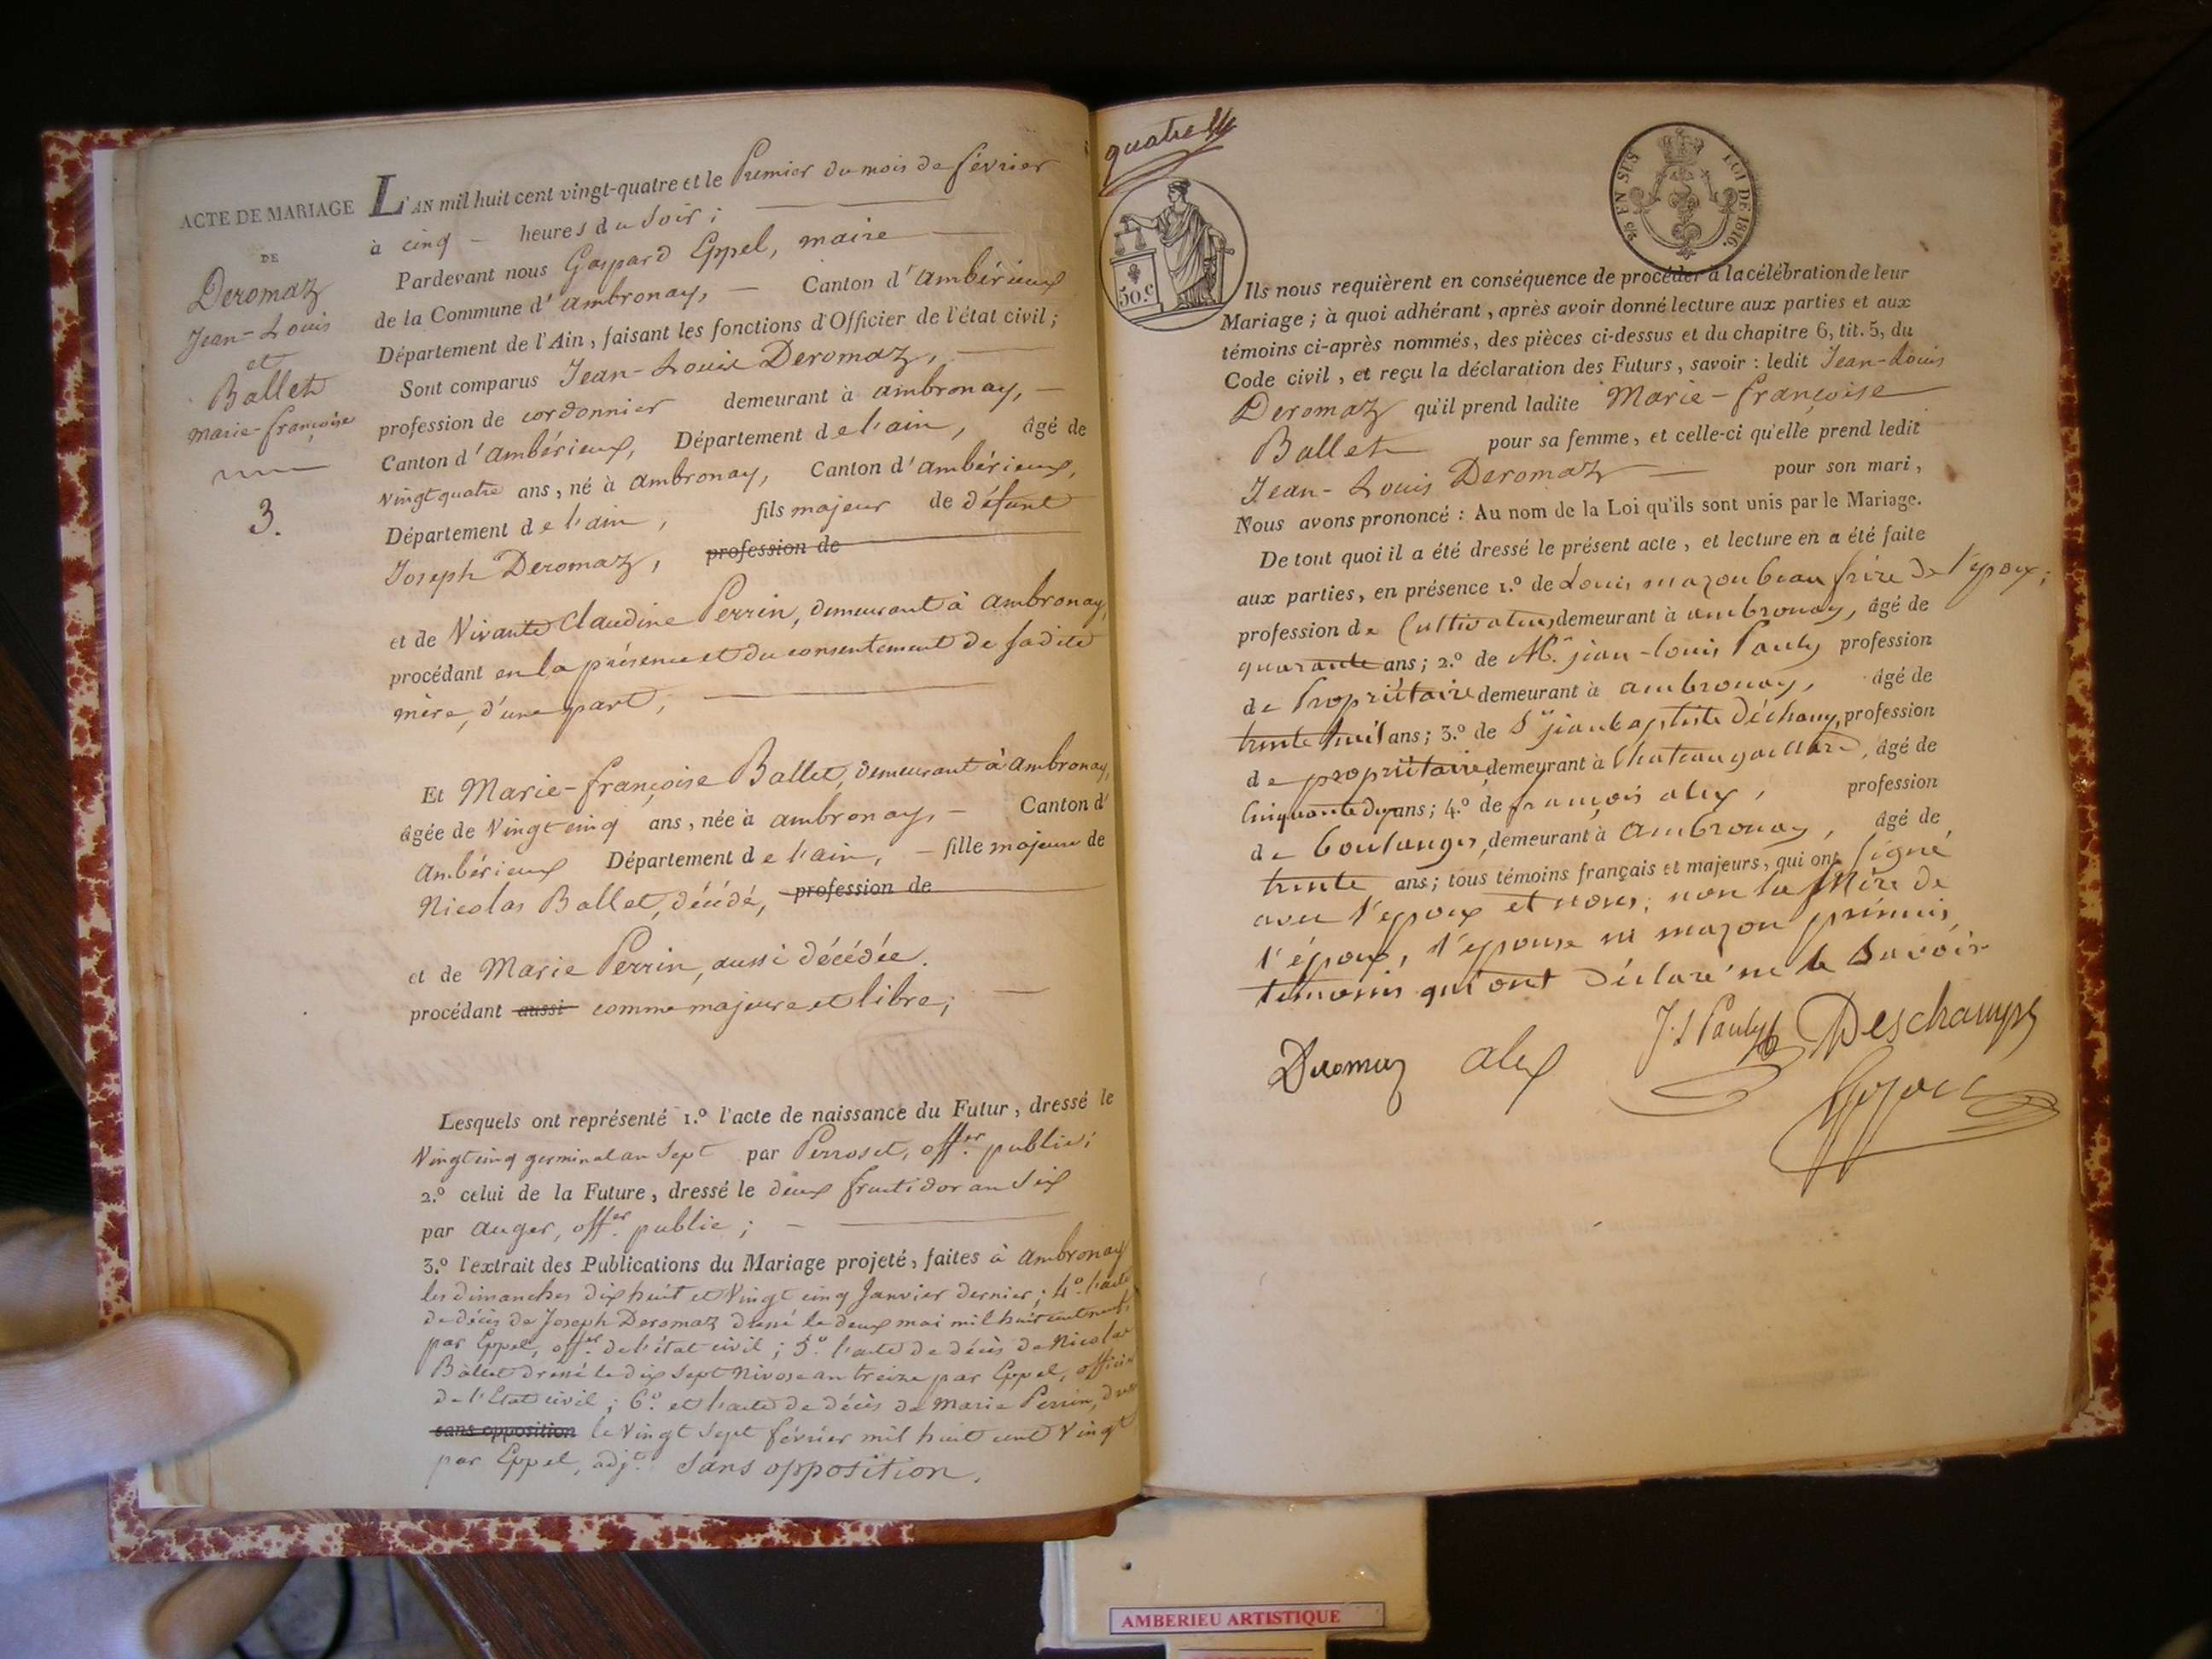 ACTE DE MARIAGE
DE
Deromaz
Jean-Louis
et
Ballet
Marie-françoise
3.
L'AN mil huit cent vingt-quatre et le Premier du mois de février
à cinq - heures du Soir ;
Pardevant nous Gaspard Eppel, maire
de la Commune d'ambronay, - Canton d'ambérieux
Département de l'Ain, faisant les fonctions d'Officier de l'état civil ;
Sont comparus Jean-Louis Deromaz,
profession de cordonnier demeurant à ambronay,
Canton d'ambérieux, Département de l'ain, âgé de
vingt quatre ans, né à ambronay, Canton d'ambérieux,
Département de l'ain, fils majeur de défunt
Joseph Deromaz, profession de
et de Vivante Claudine Perrin, demeurant à ambronay,
procédant en la présence et du consentement de sadite
mère, d'une part ;
Et Marie-françoise Ballet, demeurant à ambronay,
âgée de Vingt cinq ans, née à ambronay, - Canton d'
Ambérieux Département de l'ain, - fille majeure de
Nicolas Ballet, décédé, profession de
et de Marie Perrin, aussi décédée.
procédant aussi comme majeure et libre ;
Lesquels ont représenté 1.º l'acte de naissance du Futur, dressé le
Vingt cinq germinal an Sept par Perroset, off.er public ;
2.º celui de la Future, dressé le deux fructidor an Six
par auger, off.er public ;
3.º l'extrait des Publications du Mariage projeté, faites à ambronay
les dimanches dix huit et Vingt cinq Janvier dernier ; 4.º l'acte
de décès de Joseph Deromaz dressé le deux mai mil huit cent neuf,
par Eppel, off.er de l'état civil ; 5.º l'acte de décès de Nicolas
Ballet dressé le dix Sept Nivose an treize par Eppel, officier
de l'Etat civil ; 6.º et l'acte de décès de Marie Perrin,
sans opposition le Vingt Sept février mil huit cent Vingt
par Eppel, adj.t Sans opposition.
quatre
50.c
EN SUS
LOI DE 1816.
Ils nous requièrent en conséquence de procéder à la célébration de leur
Mariage ; à quoi adhérant, après avoir donné lecture aux parties et aux
témoins ci-après nommés, des pièces ci-dessus et du chapitre 6, tit. 5, du
Code civil, et reçu la déclaration des Futurs, savoir : ledit Jean-Louis
Deromaz qu'il prend ladite Marie-françoise
Ballet pour sa femme, et celle-ci qu'elle prend ledit
Jean-Louis Deromaz pour son mari,
Nous avons prononcé : Au nom de la Loi qu'ils sont unis par le Mariage.
De tout quoi il a été dressé le présent acte, et lecture en a été faite
aux parties, en présence 1.º de Louis mazon beau frère de l'époux ;
profession de Cultivateur, demeurant à ambronay, âgé de
quarante ans ; 2.º de Mr. jean-louis Pauly profession
de Propriétaire demeurant à ambronay, âgé de
trente huit ans ; 3.º de Sr jean baptiste déchamp, profession
de propriétaire, demeurant à Chateaugaillard, âgé de
Cinquante deux ans ; 4.º de françois alex, profession
de boulanger, demeurant à ambronay, âgé de
trente ans ; tous témoins français et majeurs, qui ont signé
avec l'epoux et nous, non la Mère de
l'époux, l'epouse ni mazon premier
témoins qui ont déclaré ne le savoir
Deromaz alex J. L Pauly Deschamps
AMBERIEU ARTISTIQUE